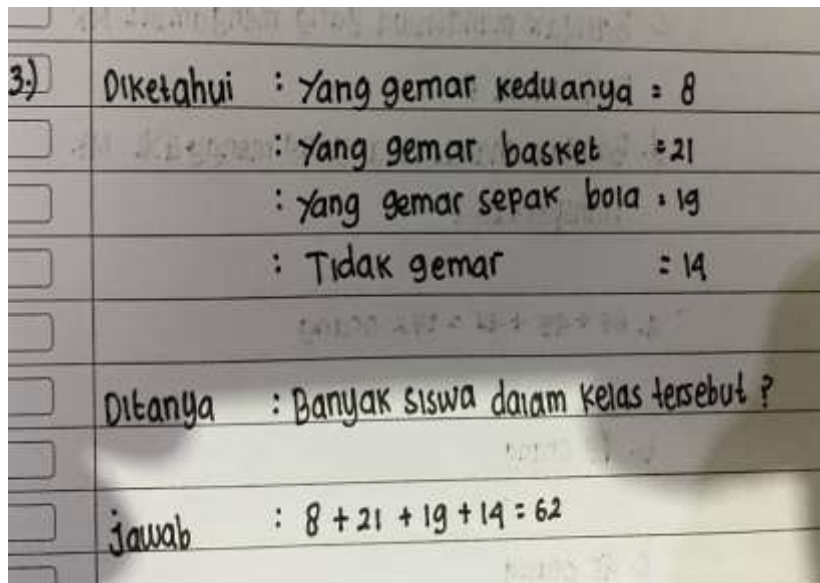 3.) Diketahui : Yang gemar keduanya = 8
: Yang gemar basket = 21
: Yang gemar sepak bola = 19
: Tidak gemar = 14
Ditanya : Banyak siswa dalam kelas tersebut ?
jawab : 8 + 21 + 19 + 14 = 62